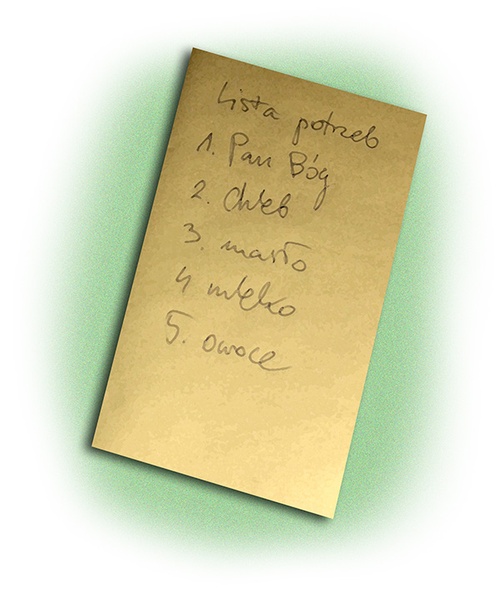 Lista potrzeb
1. Pan Bóg
2. chleb
3. masło
4 mleko
5. owoce